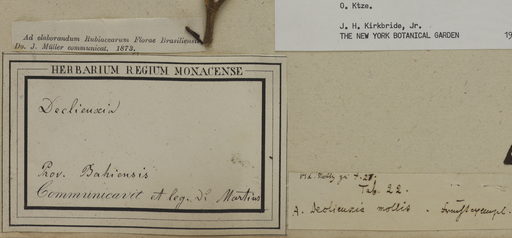 O. Ktze.
J. H. Kirkbride, Jr.
THE NEW YORK BOTANICAL GARDEN 19
Ad elaborandum Rubiacearum Florae Brasiliensis
Dr. J. Müller communicat. 1873.
HERBARIUM REGIUM MONACENSE
Declieuxia
Prov. Bahiensis
Communicavit et leg. Dr Martius
Tab. 22.
A. Declieuxia mollis.